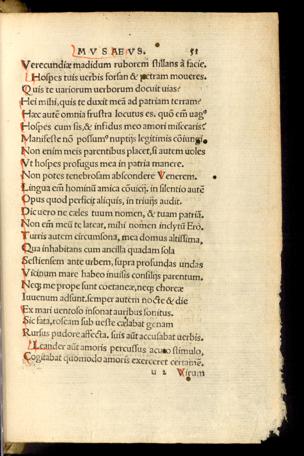 MVSAEVS. 51
Verecundiæ madidum ruborem stillans à facie.
Hospes tuis uerbis forsan & petram moueres.
Quis te uariorum uerborum docuit uias?
Hei mihi, quis te duxit meã ad patriam terram?
Hæc autẽ omnia frustra locutus es. quõ em̃ uagꝰ
Hospes cum sis, & infidus meo amori misearis?
Manifeste nõ possumꝰ nuptijs legitimis cõiungi
Non enim meis parentibus placet, si autem uoles
Vt hospes profugus mea in patria manere.
Non potes tenebrosam abscondere Venerem.
Lingua em̃ hominũ amica cõuicij. in silentio autẽ
Opus quod perficit aliquis, in triuijs audit.
Dic uero ne cæles tuum nomen, & tuam patriã.
Non em̃ meũ te latear, mihi nomen indytũ Ero.
Turris autem circumsona, mea domus altissima,
Qua inhabitans cum ancilla quadam sola
Sestiensem ante urbem, supra profundas undas
Vicinum mare habeo inuisis consilijs parentum.
Neq; me prope sunt coetaneæ, neq; choreæ
Iuuenum adsunt. semper autem nocte & die
Ex mari uentoso insonat auribus sonitus.
Sic fata, roseam sub ueste cælabat genam
Rursus pudore affecta. suis aũt accusabat uerbis.
Leander aũt amoris percussus acuto stimulo,
Cogitabat quomodo amoris exerceret certamẽ.
u 2 Virum